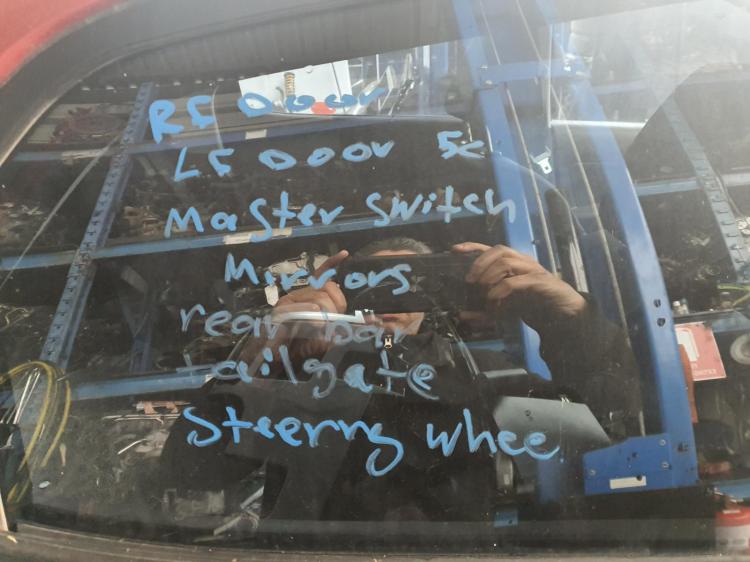 RF Door
LF Door Sc
Master switch
Mirrors
rear bar
tailgate
Steering whee